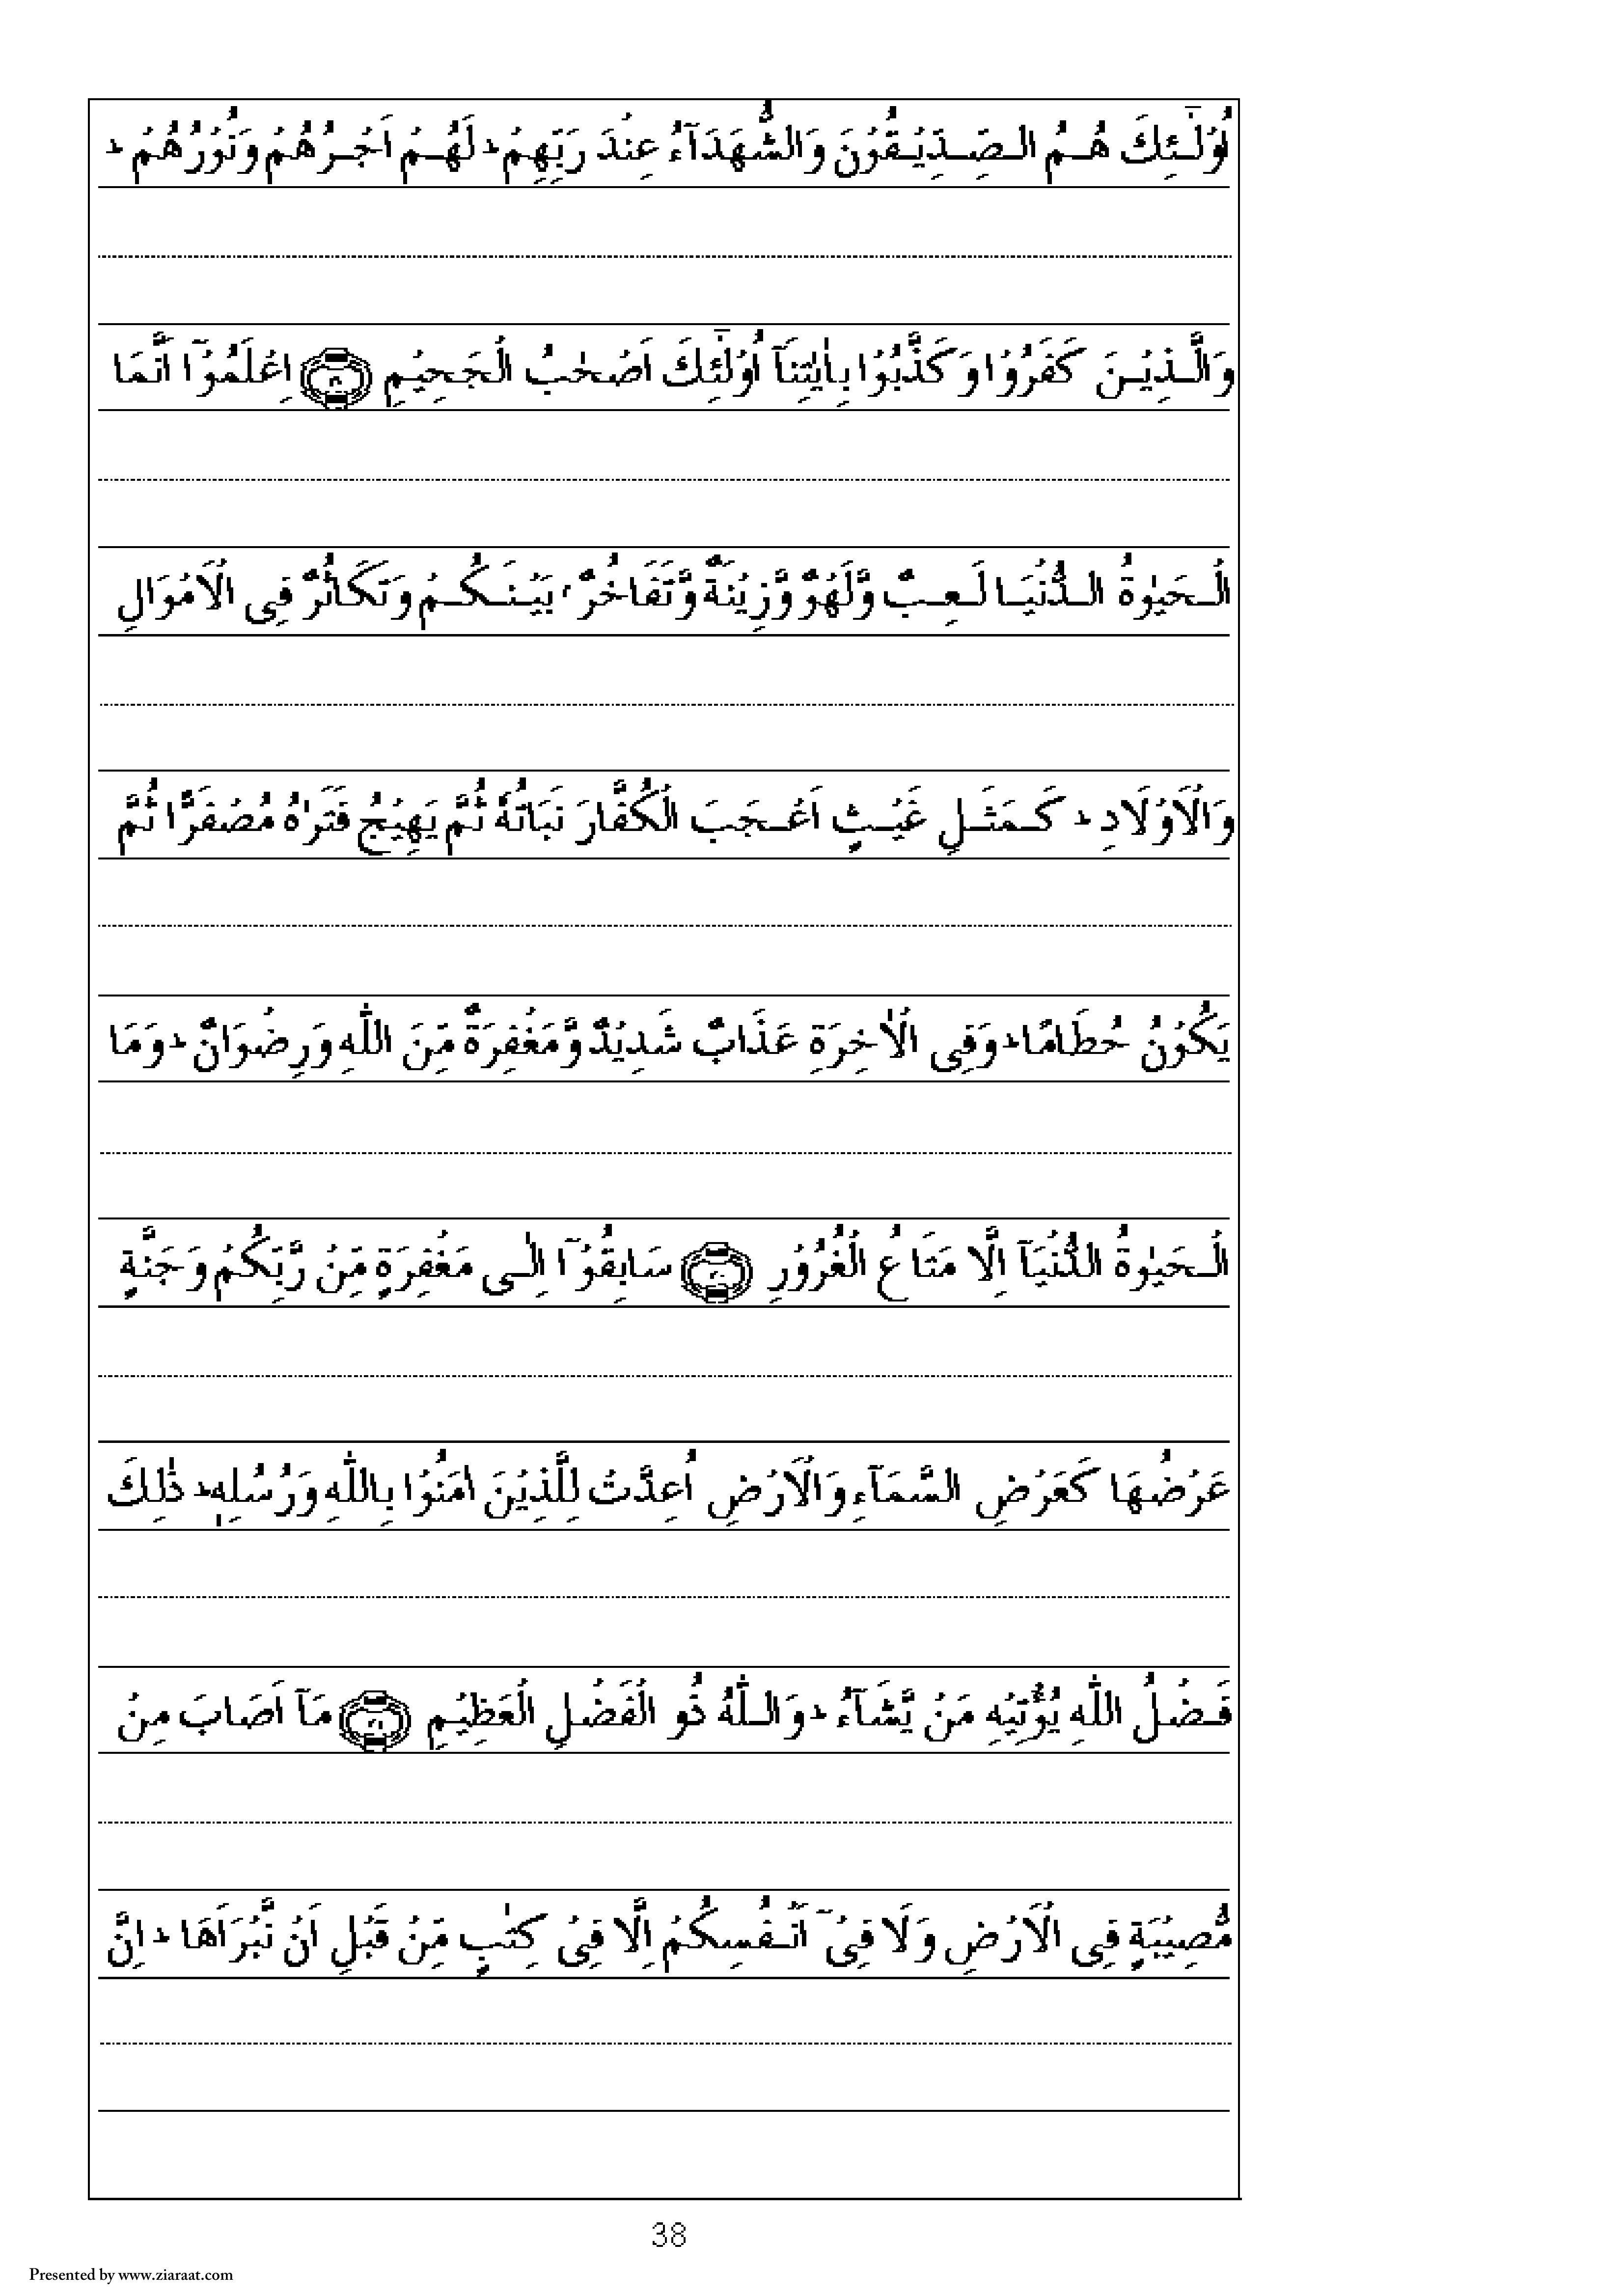 اُولٰٓئِكَ هُمُ الصِّدِّيْقُوْنَ وَالشُّهَدَآءُ عِنْدَ رَبِّهِمْ ؕ لَهُمْ اَجْرُهُمْ وَنُوْرُهُمْ ؕ
وَالَّذِيْنَ كَفَرُوْا وَكَذَّبُوْا بِاٰيٰتِنَآ اُولٰٓئِكَ اَصْحٰبُ الْجَحِيْمِ اِعْلَمُوْٓا اَنَّمَا
الْحَيٰوةُ الدُّنْيَا لَعِبٌ وَّلَهْوٌ وَّزِيْنَةٌ وَّتَفَاخُرٌۢ بَيْنَكُمْ وَتَكَاثُرٌ فِى الْاَمْوَالِ
وَالْاَوْلَادِ ؕ كَمَثَلِ غَيْثٍ اَعْجَبَ الْكُفَّارَ نَبَاتُهٗ ثُمَّ يَهِيْجُ فَتَرٰىهُ مُصْفَرًّا ثُمَّ
يَكُوْنُ حُطَامًا ؕ وَفِى الْاٰخِرَةِ عَذَابٌ شَدِيْدٌ وَّمَغْفِرَةٌ مِّنَ اللّٰهِ وَرِضْوَانٌ ؕ وَمَا
الْحَيٰوةُ الدُّنْيَآ اِلَّا مَتَاعُ الْغُرُوْرِ ٢٠ سَابِقُوْٓا اِلٰى مَغْفِرَةٍ مِّنْ رَّبِّكُمْ وَجَنَّةٍ
عَرْضُهَا كَعَرْضِ السَّمَآءِ وَالْاَرْضِ اُعِدَّتْ لِلَّذِيْنَ اٰمَنُوْا بِاللّٰهِ وَرُسُلِهٖ ؕ ذٰلِكَ
فَضْلُ اللّٰهِ يُؤْتِيْهِ مَنْ يَّشَآءُ ؕ وَاللّٰهُ ذُو الْفَضْلِ الْعَظِيْمِ ٢١ مَآ اَصَابَ مِنْ
مُّصِيْبَةٍ فِى الْاَرْضِ وَلَا فِىْٓ اَنْفُسِكُمْ اِلَّا فِىْ كِتٰبٍ مِّنْ قَبْلِ اَنْ نَّبْرَاَهَا ؕ اِنَّ
38
Presented by www.ziaraat.com